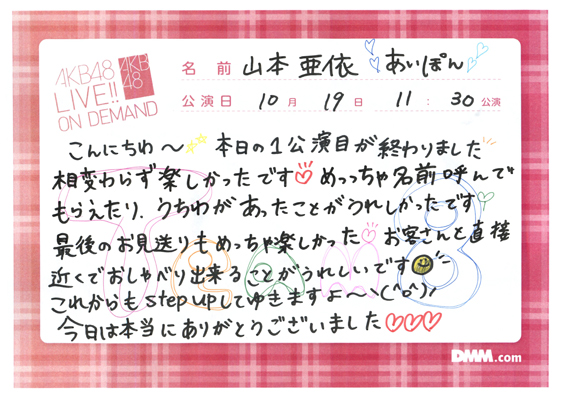 AKB48
LIVE!!
ON DEMAND
AKB
48
名前 山本 亜依 あいぽん
公演日 10月 19日 11:30公演
こんにちわ〜 本日の1公演目が終わりました
相変わらず楽しかったです めっちゃ名前呼んで
もらえたり、うちわがあったことがうれしかったです
最後のお見送りもめっちゃ楽しかった お客さんと直接
近くでおしゃべり出来ることがうれしいです
これからもstep upしてゆきますよ〜\(^o^)/
今日は本当にありがとうございました♡♡♡
Team 8
DMM.com